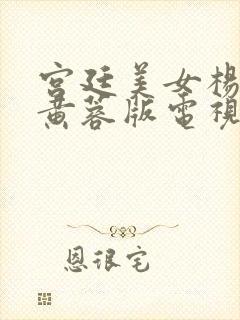 宫廷美女楊
黄蓉版電視
恩很宅